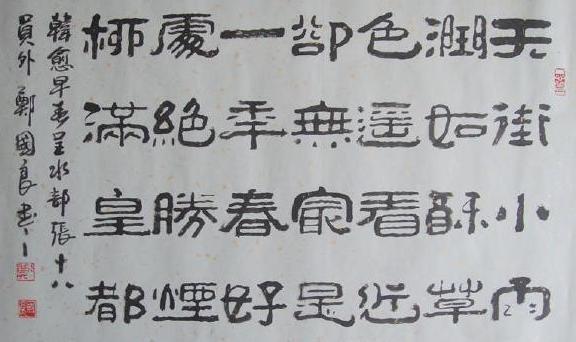 天街小雨
潤如酥草
色遥看近
卻無最是
一年春好
處絕勝煙
柳滿皇都
韓愈早春呈水部張十八
員外 鄭國良書